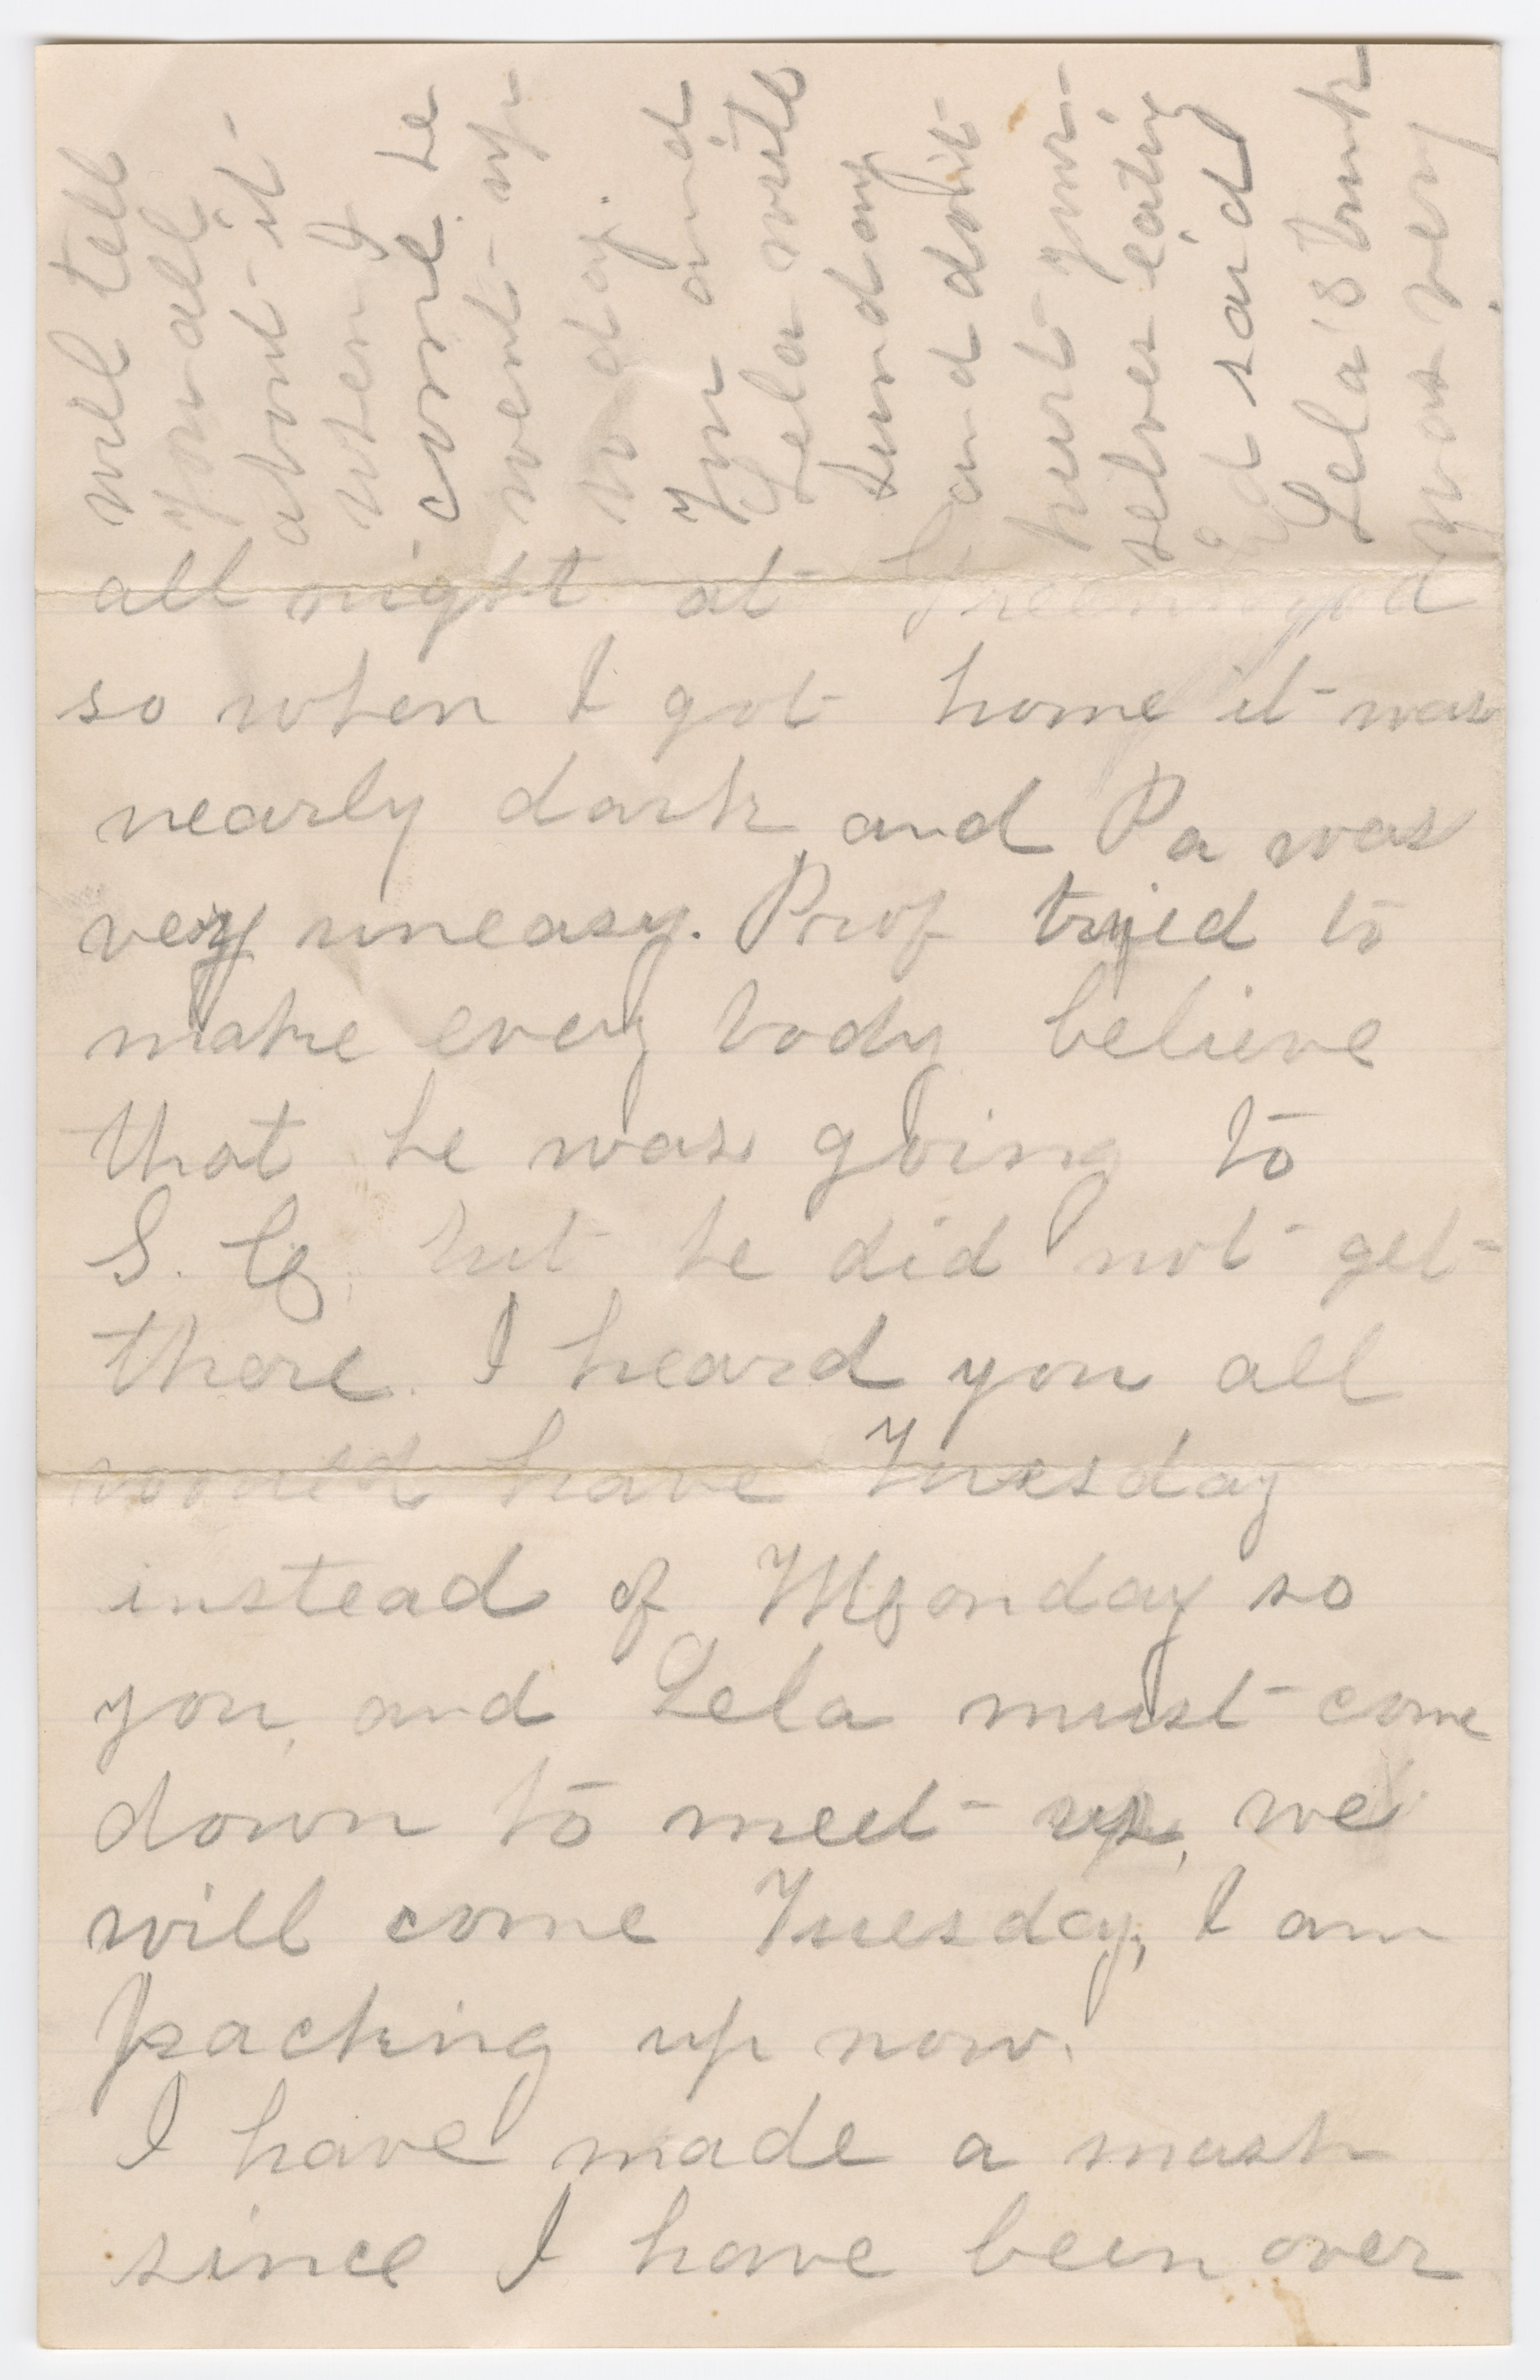 will tell
you all
about it
when I
come he
went up
to day.
You and
Lela write
Sunday
and don't
hurt your
selves eating
Ed said
Lela's trunk
was very
all night at Greenwood
so when I got home it was
nearly dark and Pa was
very uneasy. Prof tryed to
make every body believe
that he was going to
S. C. but he did not get
there. I heard you all
would have Tuesday
instead of Monday so
you, and Lela must come
down to meet us, we
will come Tuesday, I am
packing up now.
I have made a mash
since I have been over